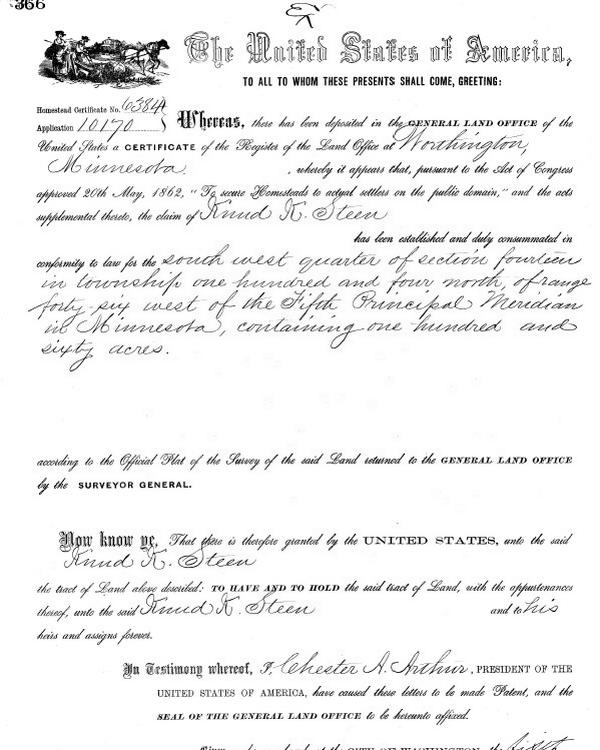 366
The United States of America,
TO ALL TO WHOM THESE PRESENTS SHALL COME, GREETING:
Homestead Certificate No. 6384
Application 10170
Whereas, there has been deposited in the GENERAL LAND OFFICE of the
United States a CERTIFICATE of the Register of the Land Office at Worthington,
Minnesota. , whereby it appears that, pursuant to the Act of Congress
approved 20th May, 1862, "To secure Homesteads to actual settlers on the public domain," and the acts
supplemental thereto, the claim of Knud K. Steen
has been established and duly consummated in
conformity to law for the south west quarter of section fourteen
in township one hundred and four north, of range
forty-six west of the Fifth Principal Meridian
in Minnesota, containing one hundred and
sixty acres.
according to the Official Plat of the Survey of the said Land returned to the GENERAL LAND OFFICE
by the SURVEYOR GENERAL.
Now know ye, That there is therefore granted by the UNITED STATES, unto the said
Knud K. Steen
the tract of Land above described: TO HAVE AND TO HOLD the said tract of Land, with the appurtenances
thereof, unto the said Knud K. Steen and to his
heirs and assigns forever.
In Testimony whereof, I, Chester A. Arthur, PRESIDENT OF THE
UNITED STATES OF AMERICA, have caused these letters to be made Patent, and the
SEAL OF THE GENERAL LAND OFFICE to be hereunto affixed.